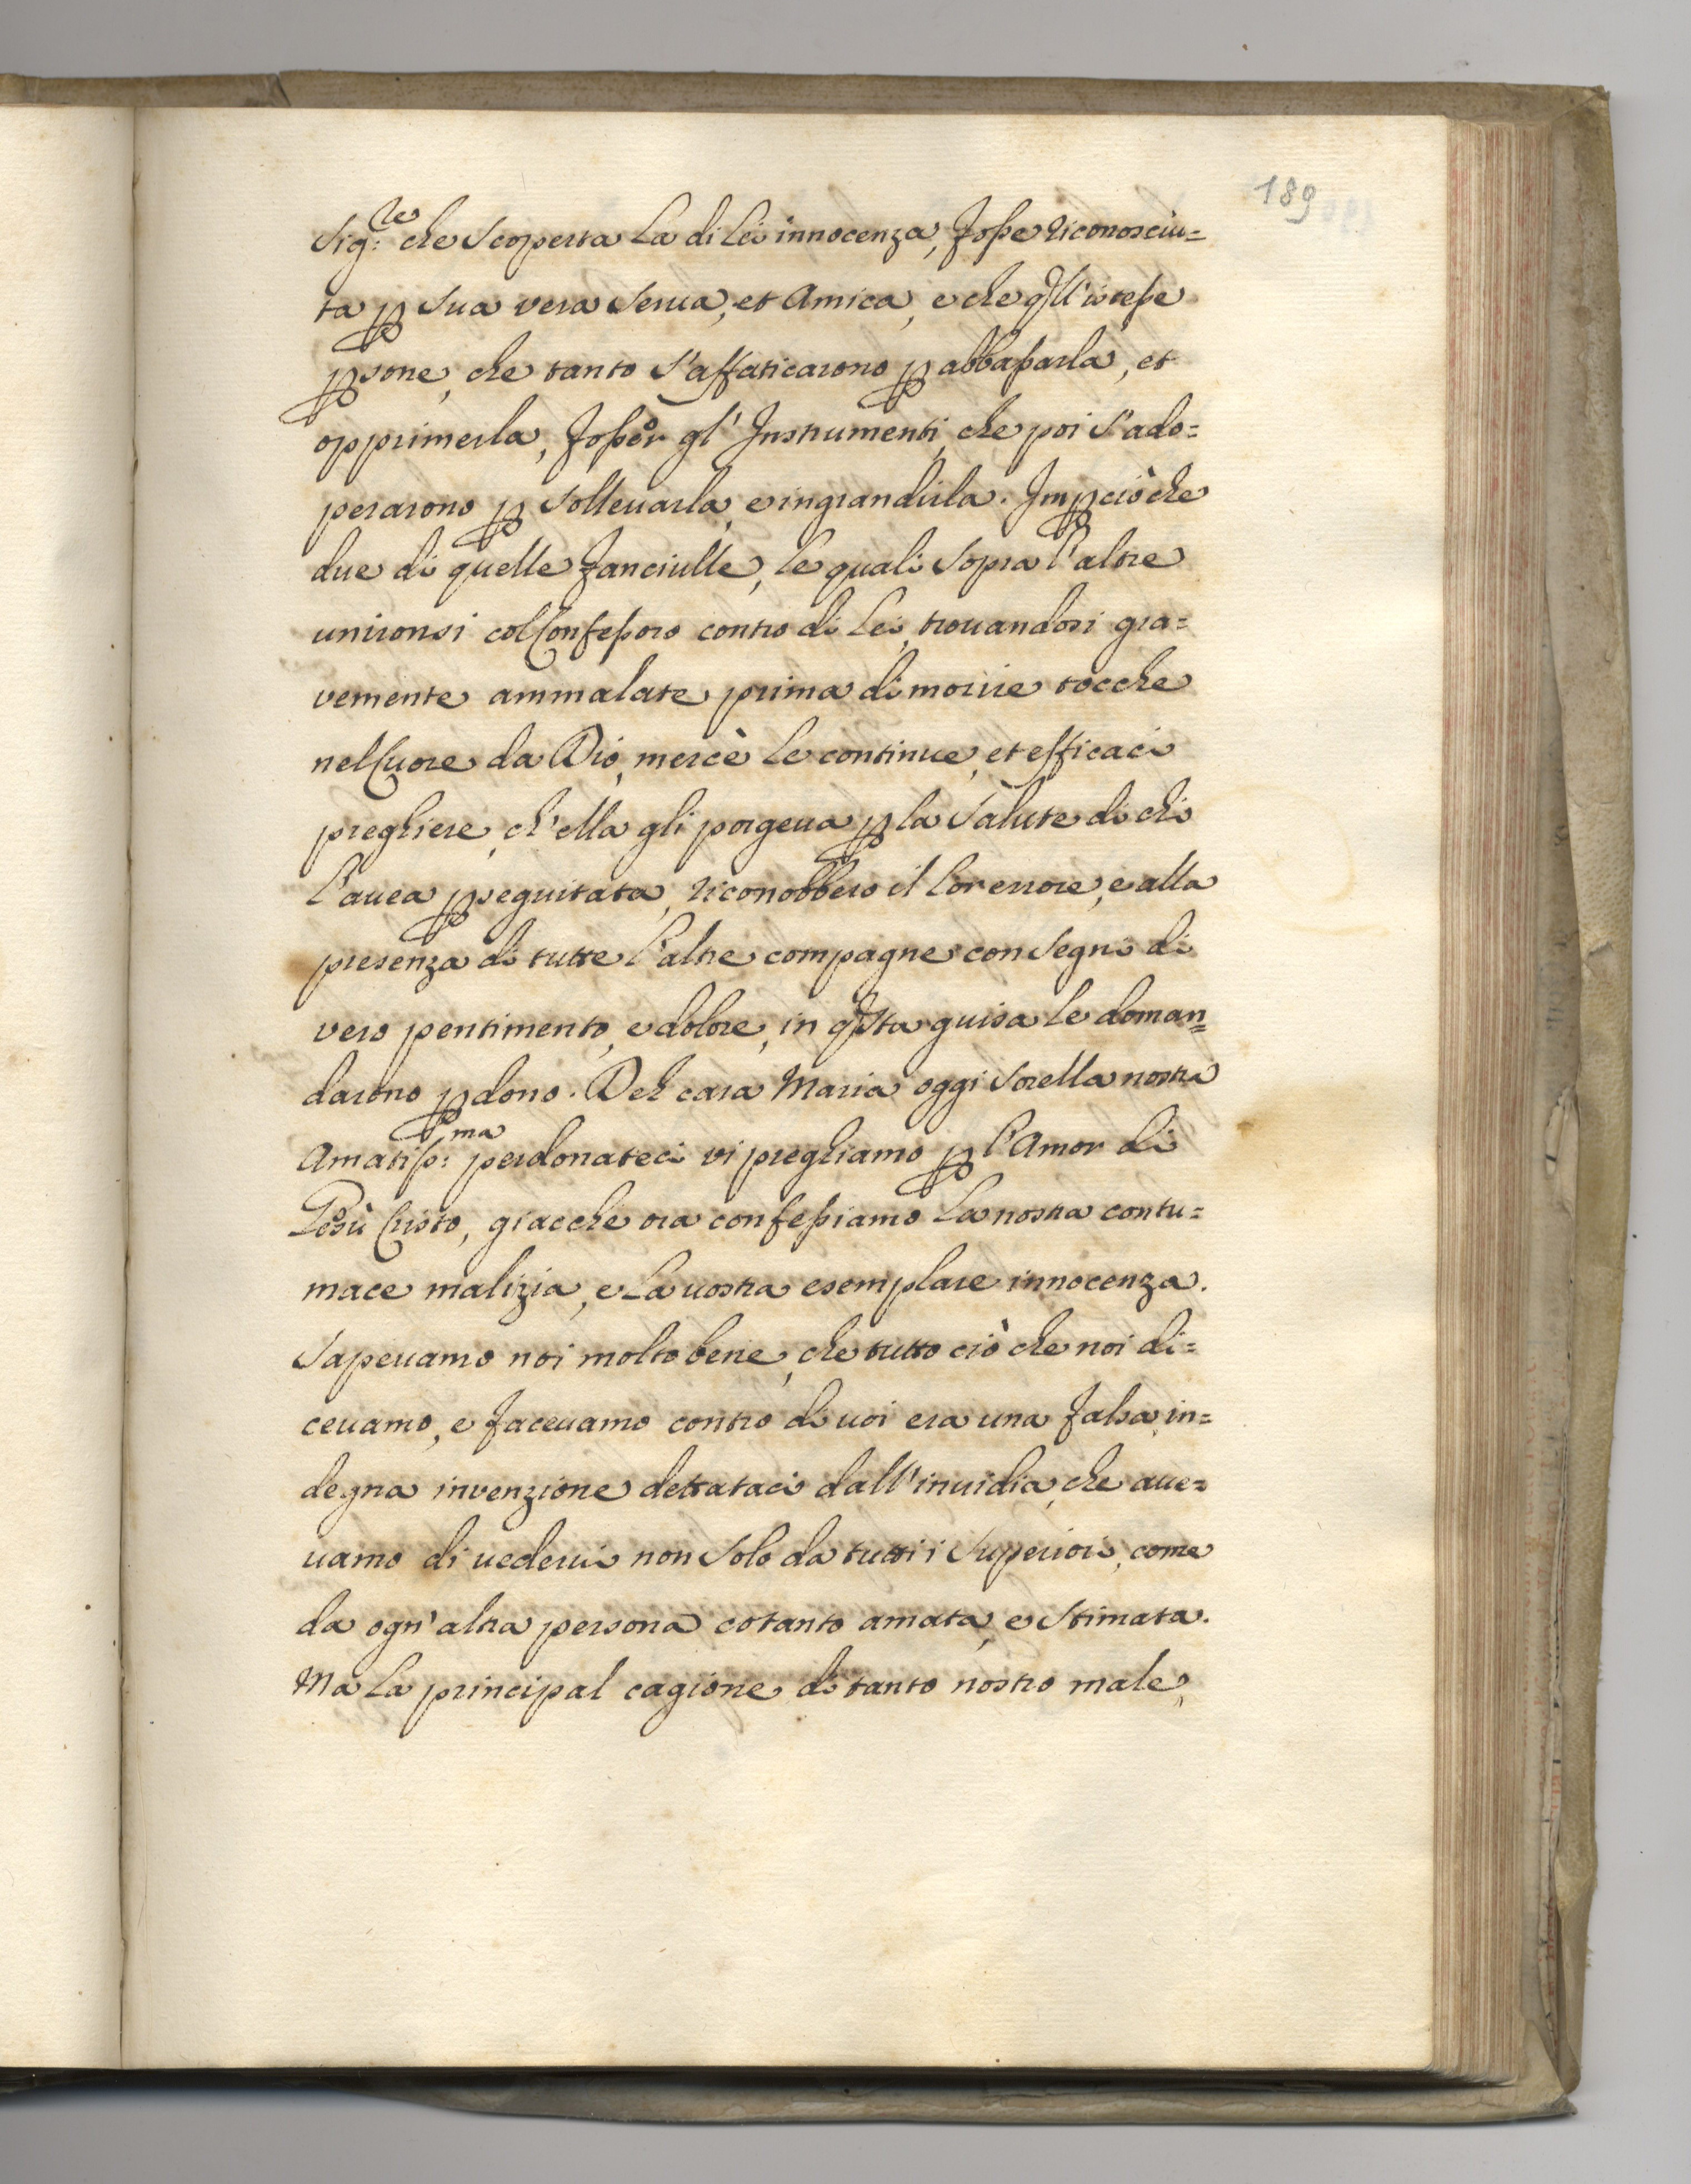 189
Sig:re che scoperta la di lei innocenza, fosse riconosciu=
ta p sua vera Serua, et Amica, e che qll'istesse
psone, che tanto s'affaticarono p abbassarla, et
opprimerla, fosser gl'Instrumenti, che poi s'ado=
perarono p solleuarla, e ingrandirla. Impciòche
due di quelle fanciulle, le quali sopra l'altre
unironsi col Confessoro contro di lei, trouandosi gra=
vemente ammalate, prima di morire tocche
nel Cuore da Dio, mercè le continue, et efficaci
preghiere, ch'ella gli porgeua p la salute di chi
l'auea pseguitata, riconobbero il lor errore, e alla
presenza di tutte l'altre compagne con segni di
vero pentimento, e dolore, in qsta guisa le doman=
darono pdono. Deh cara Maria oggi sorella nostra
Amatiss:ma perdonateci vi preghiamo p l'Amor di
Gesù Cristo, giacche ora confessiamo la nostra contu=
mace malizia, e la uostra esemplare innocenza.
Sapeuamo noi molto bene, che tutto ciò che noi di=
ceuamo, e faceuamo contro di uoi era una falsa, in=
degna invenzione dettataci dall'inuidia, che aue=
uamo di uederui non solo da tutti i Superiori, come
da ogn'altra persona cotanto amata, e stimata.
Ma la principal cagione di tanto nostro male,